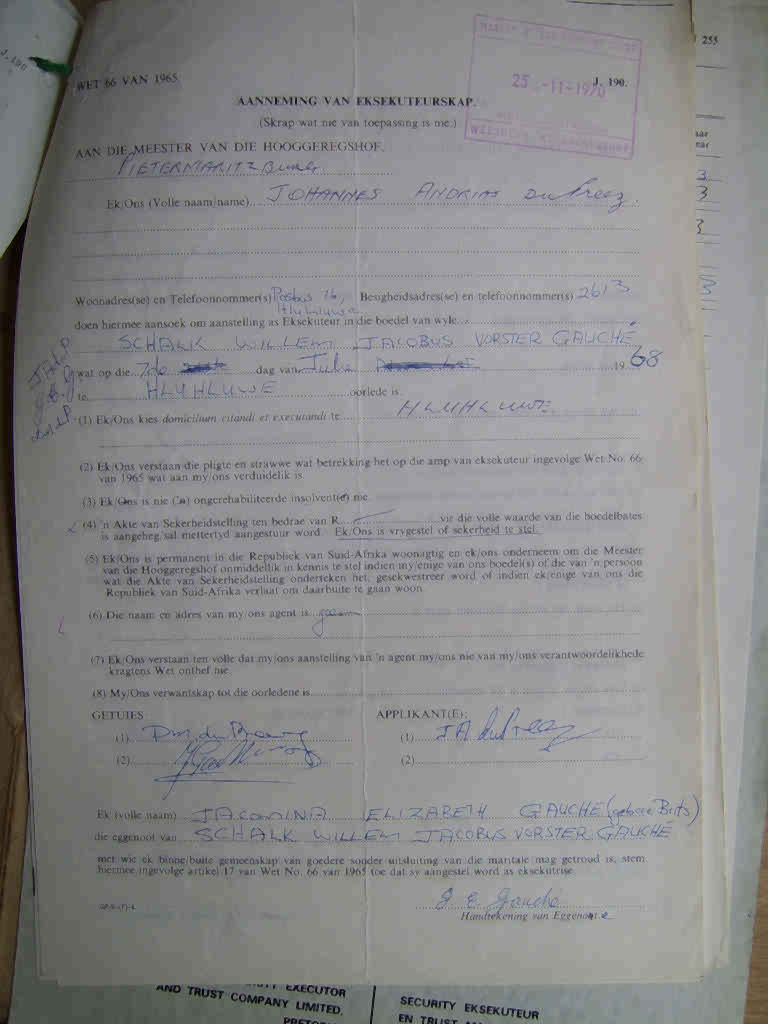 J. 190
255
WET 66 VAN 1965
J. 190.
25 -11-1970
AANNEMING VAN EKSEKUTEURSKAP.
(Skrap wat nie van toepassing is nie.)
AAN DIE MEESTER VAN DIE HOOGGEREGSHOF,
PIETERMARITZBURG
Ek/Ons (Volle naam/name) JOHANNES ANDRIAS du Preez
Woonadres(se) en Telefoonnommer(s) Posbus 76, Besigheidsadres(se) en telefoonnommer(s) 2613
Hluhluwe
doen hiermee aansoek om aanstelling as Eksekuteur in die boedel van wyle
SCHALK WILLEM JACOBUS VORSTER GAUCHÉ
wat op die 7de dag van Julie 1968
te HLUHLUWE oorlede is.
(1) Ek/Ons kies domicilium citandi et executandi te HLUHLUWE
(2) Ek/Ons verstaan die pligte en strawwe wat betrekking het op die amp van eksekuteur ingevolge Wet No. 66
van 1965 wat aan my/ons verduidelik is.
(3) Ek/Ons is nie ('n) ongerehabiliteerde insolvent(e) nie.
(4) 'n Akte van Sekerheidstelling ten bedrae van R vir die volle waarde van die boedelbates
is aangeheg/sal mettertyd aangestuur word. Ek/Ons is vrygestel of sekerheid te stel.
(5) Ek/Ons is permanent in die Republiek van Suid-Afrika woonagtig en ek/ons onderneem om die Meester
van die Hooggeregshof onmiddellik in kennis te stel indien my/enige van ons boedel(s) of die van 'n persoon
wat die Akte van Sekerheidstelling onderteken het, gesekwestreer word of indien ek/enige van ons die
Republiek van Suid-Afrika verlaat om daarbuite te gaan woon.
(6) Die naam en adres van my/ons agent is geen
(7) Ek/Ons verstaan ten volle dat my/ons aanstelling van 'n agent my/ons nie van my/ons verantwoordelikhede
kragtens Wet onthef nie.
(8) My/Ons verwantskap tot die oorledene is
GETUIES: APPLIKANT(E):
(1) (1) JA du Preez
(2) (2)
Ek (volle naam) JACOMINA ELIZABETH GAUCHÉ (gebore Brits)
die eggenoot van SCHALK WILLEM JACOBUS VORSTER GAUCHÉ
met wie ek binne/buite gemeenskap van goedere sonder uitsluiting van die maritale mag getroud is, stem
hiermee ingevolge artikel 17 van Wet No. 66 van 1965 toe dat sy aangestel word as eksekutrise.
J E Gauché
Handtekening van Eggenote
EXECUTOR
AND TRUST COMPANY LIMITED.
PRETO
SECURITY EKSEKUTEUR
EN TRUST